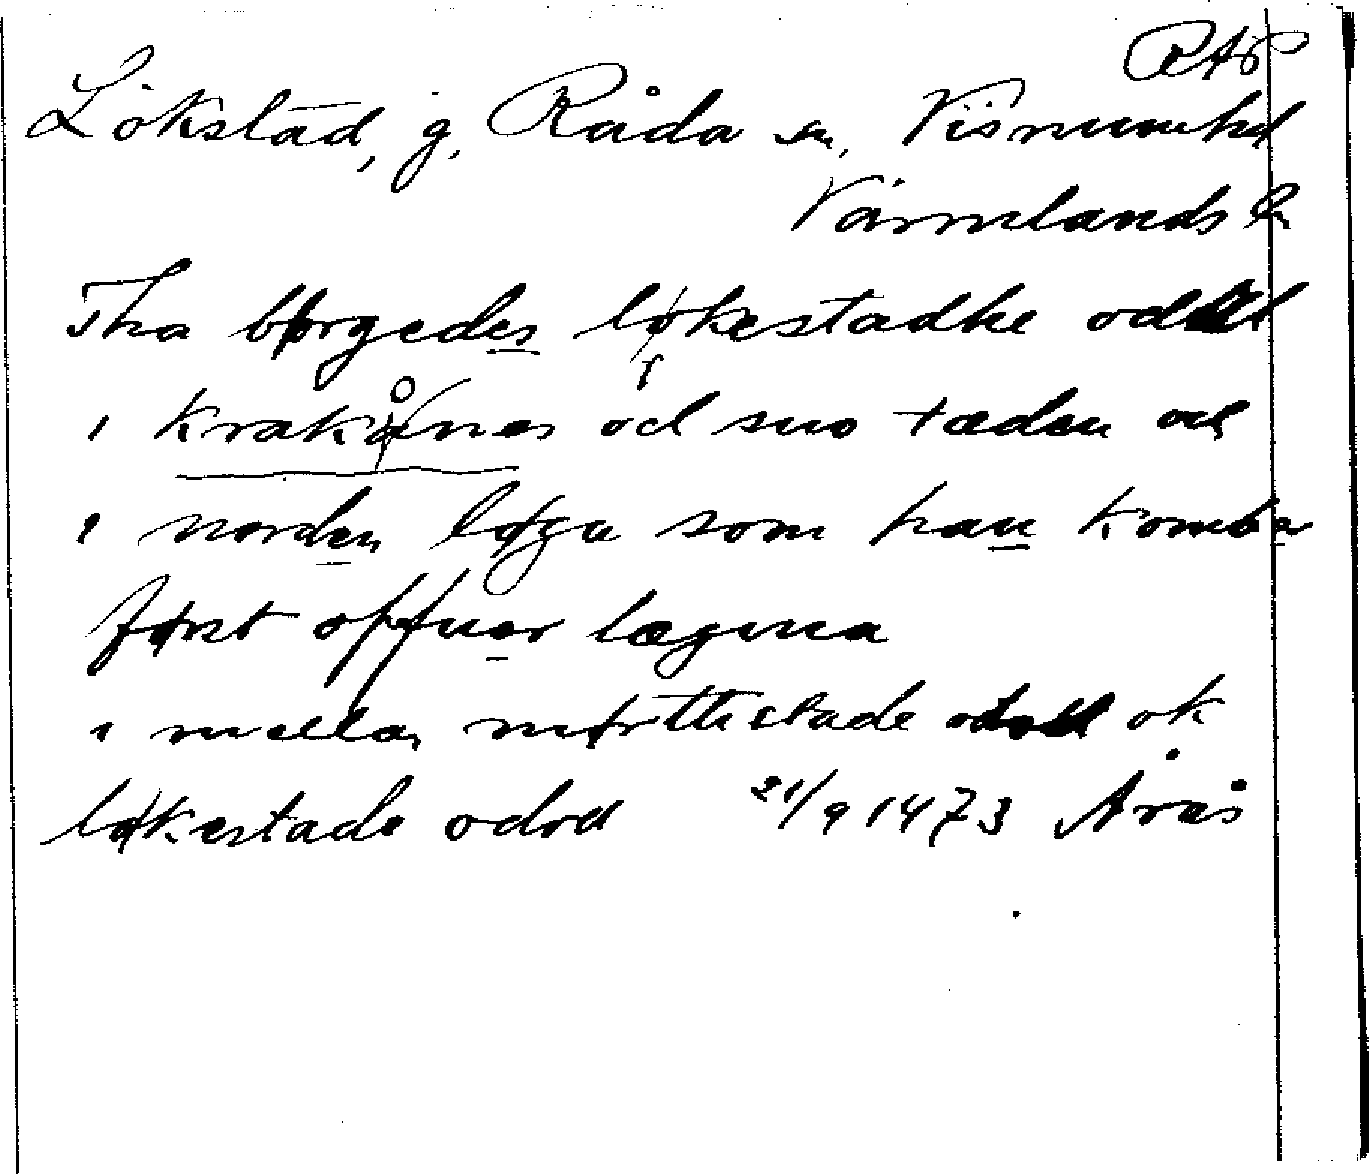 RAP
Lökstad, g. Råda sn, Visnumshd
Värmlands l.
Tha børgedes løkestadhe oddel
i Krakånes od suo tæden oc
i norden løgu som han komber
først offuer lægena
i mellan mørttistade odol ok
løkestade odol 21/9 1473 Årås